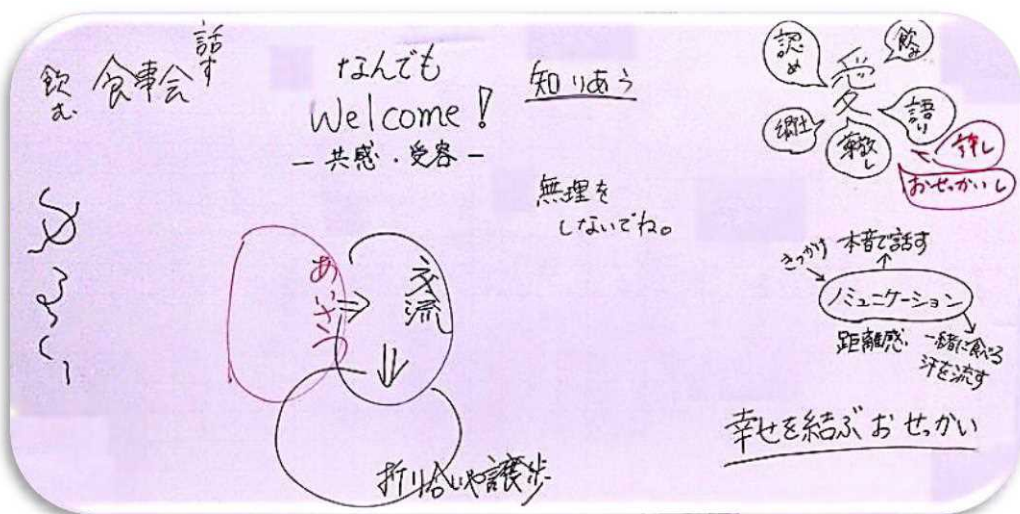 話す
飲む
食事会
なんでも
Welcome!
ー共感・受容ー
知りあう
無理を
しないでね。
あいさつ
⇒
交流
⇓
折り合いや譲歩
愛
認め
飲み
語り
許し
おせっかいし
郷土
きっかけ
本音で話す
ノミュニケーション
距離感
一緒に食べる
汗を流す
幸せを結ぶおせっかい